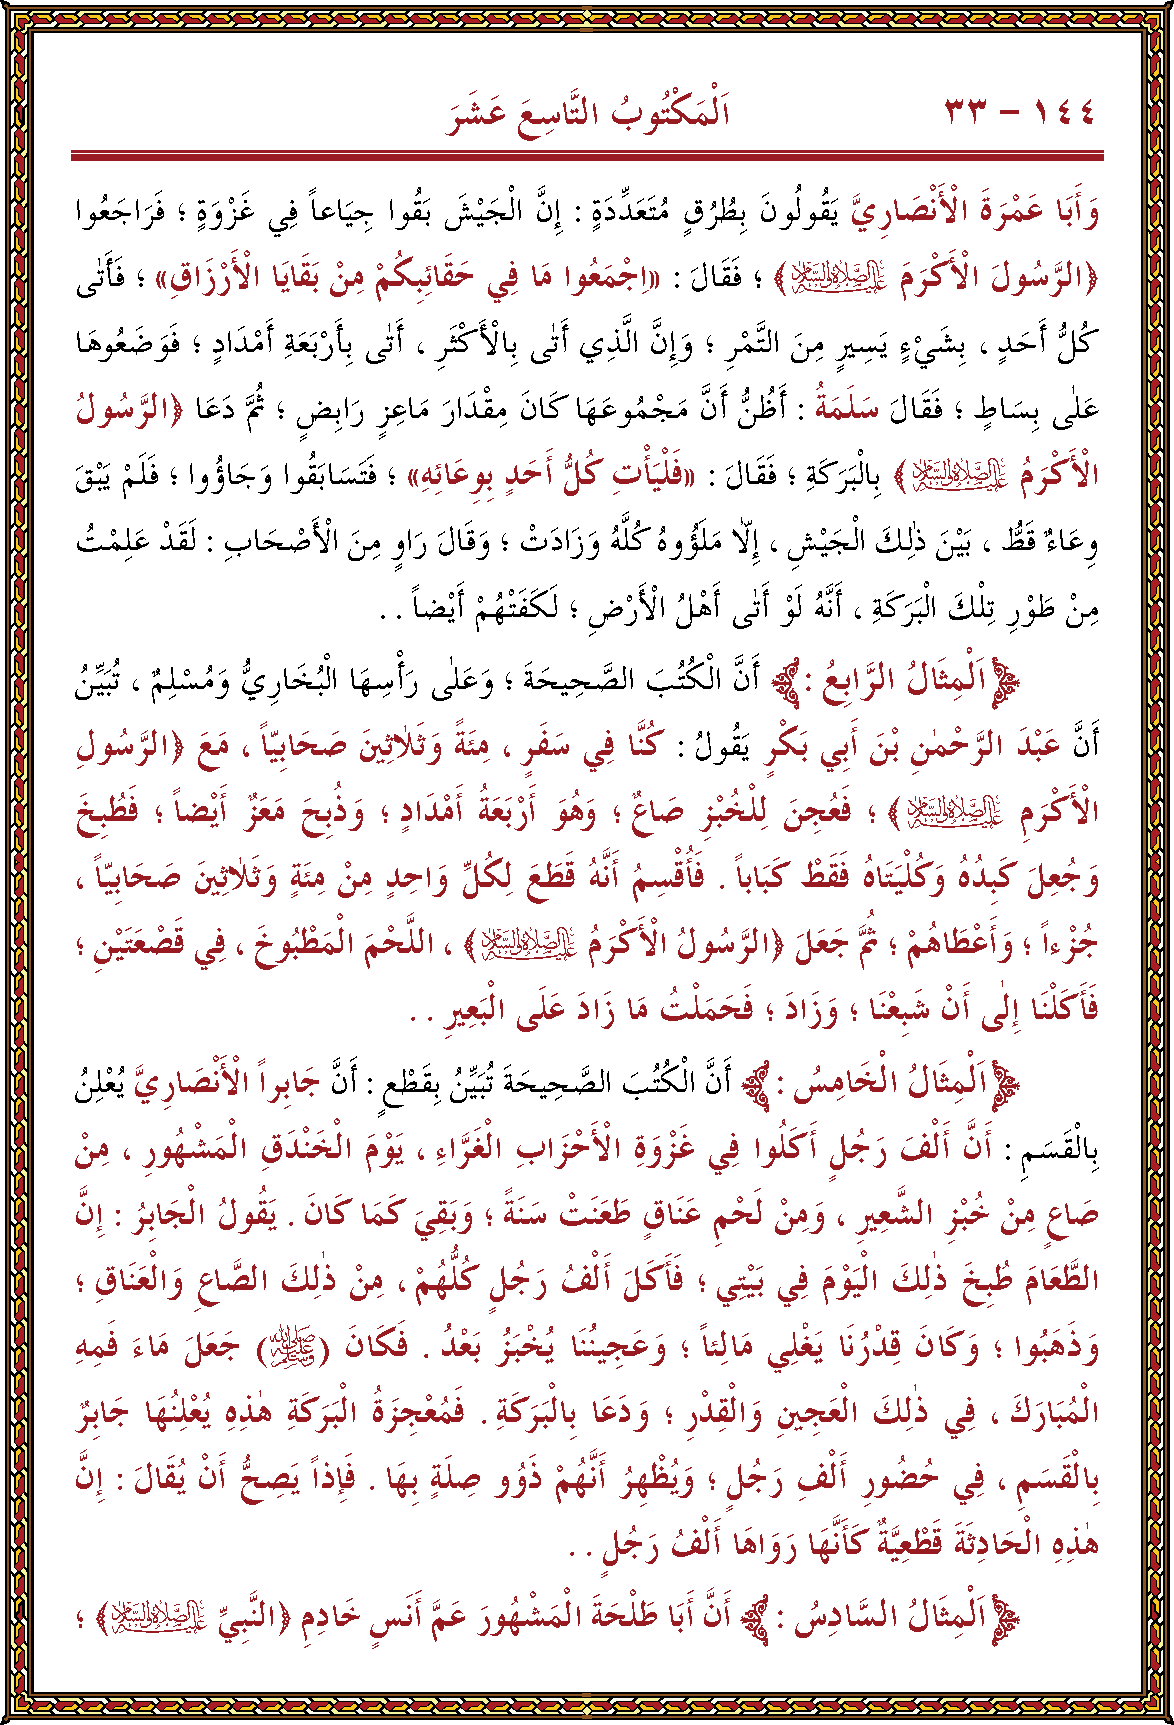 ١٤٤ – ٣٣ اَلْمَكْتُوبُ التَّاسِعَ عَشَرَ
وَأَبَا عَمْرَةَ الْأَنْصَارِيَّ يَقُولُونَ بِطُرُقٍ مُتَعَدِّدَةٍ : إِنَّ الْجَيْشَ بَقُوا جِيَاعاً فِي غَزْوَةٍ ؛ فَرَاجَعُوا
﴿الرَّسُولَ الْأَكْرَمَ عَلَيْهِ الصَّلَاةُ وَالسَّلَامُ﴾ ؛ فَقَالَ : «اِجْمَعُوا مَا فِي حَقَائِبِكُمْ مِنْ بَقَايَا الْأَرْزَاقِ» ؛ فَأَتٰى
كُلُّ أَحَدٍ ، بِشَيْءٍ يَسِيرٍ مِنَ التَّمْرِ ؛ وَإِنَّ الَّذِي أَتٰى بِالْأَكْثَرِ ، أَتٰى بِأَرْبَعَةِ أَمْدَادٍ ؛ فَوَضَعُوهَا
عَلٰى بِسَاطٍ ؛ فَقَالَ سَلَمَةُ : أَظُنُّ أَنَّ مَجْمُوعَهَا كَانَ مِقْدَارَ مَاعِزٍ رَابِضٍ ؛ ثُمَّ دَعَا ﴿الرَّسُولُ
الْأَكْرَمُ عَلَيْهِ الصَّلَاةُ وَالسَّلَامُ﴾ بِالْبَرَكَةِ ؛ فَقَالَ : «فَلْيَأْتِ كُلُّ أَحَدٍ بِوِعَائِهِ» ؛ فَتَسَابَقُوا وَجَاؤُوا ؛ فَلَمْ يَبْقَ
وِعَاءٌ قَطُّ ، بَيْنَ ذٰلِكَ الْجَيْشِ ، إِلَّا مَلَؤُوهُ كُلَّهُ وَزَادَتْ ؛ وَقَالَ رَاوٍ مِنَ الْأَصْحَابِ : لَقَدْ عَلِمْتُ
مِنْ طَوْرِ تِلْكَ الْبَرَكَةِ ، أَنَّهُ لَوْ أَتٰى أَهْلُ الْأَرْضِ ؛ لَكَفَتْهُمْ أَيْضاً . .
اَلْمِثَالُ الرَّابِعُ : أَنَّ الْكُتُبَ الصَّحِيحَةَ ؛ وَعَلٰى رَأْسِهَا الْبُخَارِيُّ وَمُسْلِمٌ ، تُبَيِّنُ
أَنَّ عَبْدَ الرَّحْمٰنِ بْنَ أَبِي بَكْرٍ يَقُولُ : كُنَّا فِي سَفَرٍ ، مِئَةً وَثَلٰاثِينَ صَحَابِيّاً ، مَعَ ﴿الرَّسُولِ
الْأَكْرَمِ عَلَيْهِ الصَّلَاةُ وَالسَّلَامُ﴾ ؛ فَعُجِنَ لِلْخُبْزِ صَاعٌ ؛ وَهُوَ أَرْبَعَةُ أَمْدَادٍ ؛ وَذُبِحَ مَعَزٌ أَيْضاً ؛ فَطُبِخَ
وَجُعِلَ كَبِدُهُ وَكُلْيَتَاهُ فَقَطْ كَبَاباً . فَأُقْسِمُ أَنَّهُ قَطَعَ لِكُلِّ وَاحِدٍ مِنْ مِئَةٍ وَثَلٰاثِينَ صَحَابِيّاً ،
جُزْءاً ؛ وَأَعْطَاهُمْ ؛ ثُمَّ جَعَلَ ﴿الرَّسُولُ الْأَكْرَمُ عَلَيْهِ الصَّلَاةُ وَالسَّلَامُ﴾ ، اللَّحْمَ الْمَطْبُوخَ ، فِي قَصْعَتَيْنِ ؛
فَأَكَلْنَا إِلٰى أَنْ شَبِعْنَا ؛ وَزَادَ ؛ فَحَمَلْتُ مَا زَادَ عَلَى الْبَعِيرِ . .
اَلْمِثَالُ الْخَامِسُ : أَنَّ الْكُتُبَ الصَّحِيحَةَ تُبَيِّنُ بِقَطْعٍ : أَنَّ جَابِراً الْأَنْصَارِيَّ يُعْلِنُ
بِالْقَسَمِ : أَنَّ أَلْفَ رَجُلٍ أَكَلُوا فِي غَزْوَةِ الْأَحْزَابِ الْغَرَّاءِ ، يَوْمَ الْخَنْدَقِ الْمَشْهُورِ ، مِنْ
صَاعٍ مِنْ خُبْزِ الشَّعِيرِ ، وَمِنْ لَحْمِ عَنَاقٍ طَعَنَتْ سَنَةً ؛ وَبَقِيَ كَمَا كَانَ . يَقُولُ الْجَابِرُ : إِنَّ
الطَّعَامَ طُبِخَ ذٰلِكَ الْيَوْمَ فِي بَيْتِي ؛ فَأَكَلَ أَلْفُ رَجُلٍ كُلُّهُمْ ، مِنْ ذٰلِكَ الصَّاعِ وَالْعَنَاقِ ؛
وَذَهَبُوا ؛ وَكَانَ قِدْرُنَا يَغْلِي مَالِئاً ؛ وَعَجِينُنَا يُخْبَزُ بَعْدُ . فَكَانَ (ﷺ) جَعَلَ مَاءَ فَمِهِ
الْمُبَارَكَ ، فِي ذٰلِكَ الْعَجِينِ وَالْقِدْرِ ؛ وَدَعَا بِالْبَرَكَةِ . فَمُعْجِزَةُ الْبَرَكَةِ هٰذِهِ يُعْلِنُهَا جَابِرٌ
بِالْقَسَمِ ، فِي حُضُورِ أَلْفِ رَجُلٍ ؛ وَيُظْهِرُ أَنَّهُمْ ذَوُو صِلَةٍ بِهَا . فَإِذاً يَصِحُّ أَنْ يُقَالَ : إِنَّ
هٰذِهِ الْحَادِثَةَ قَطْعِيَّةٌ كَأَنَّهَا رَوَاهَا أَلْفُ رَجُلٍ . .
اَلْمِثَالُ السَّادِسُ : أَنَّ أَبَا طَلْحَةَ الْمَشْهُورَ عَمَّ أَنَسٍ خَادِمِ ﴿النَّبِيِّ عَلَيْهِ الصَّلَاةُ وَالسَّلَامُ﴾ ؛